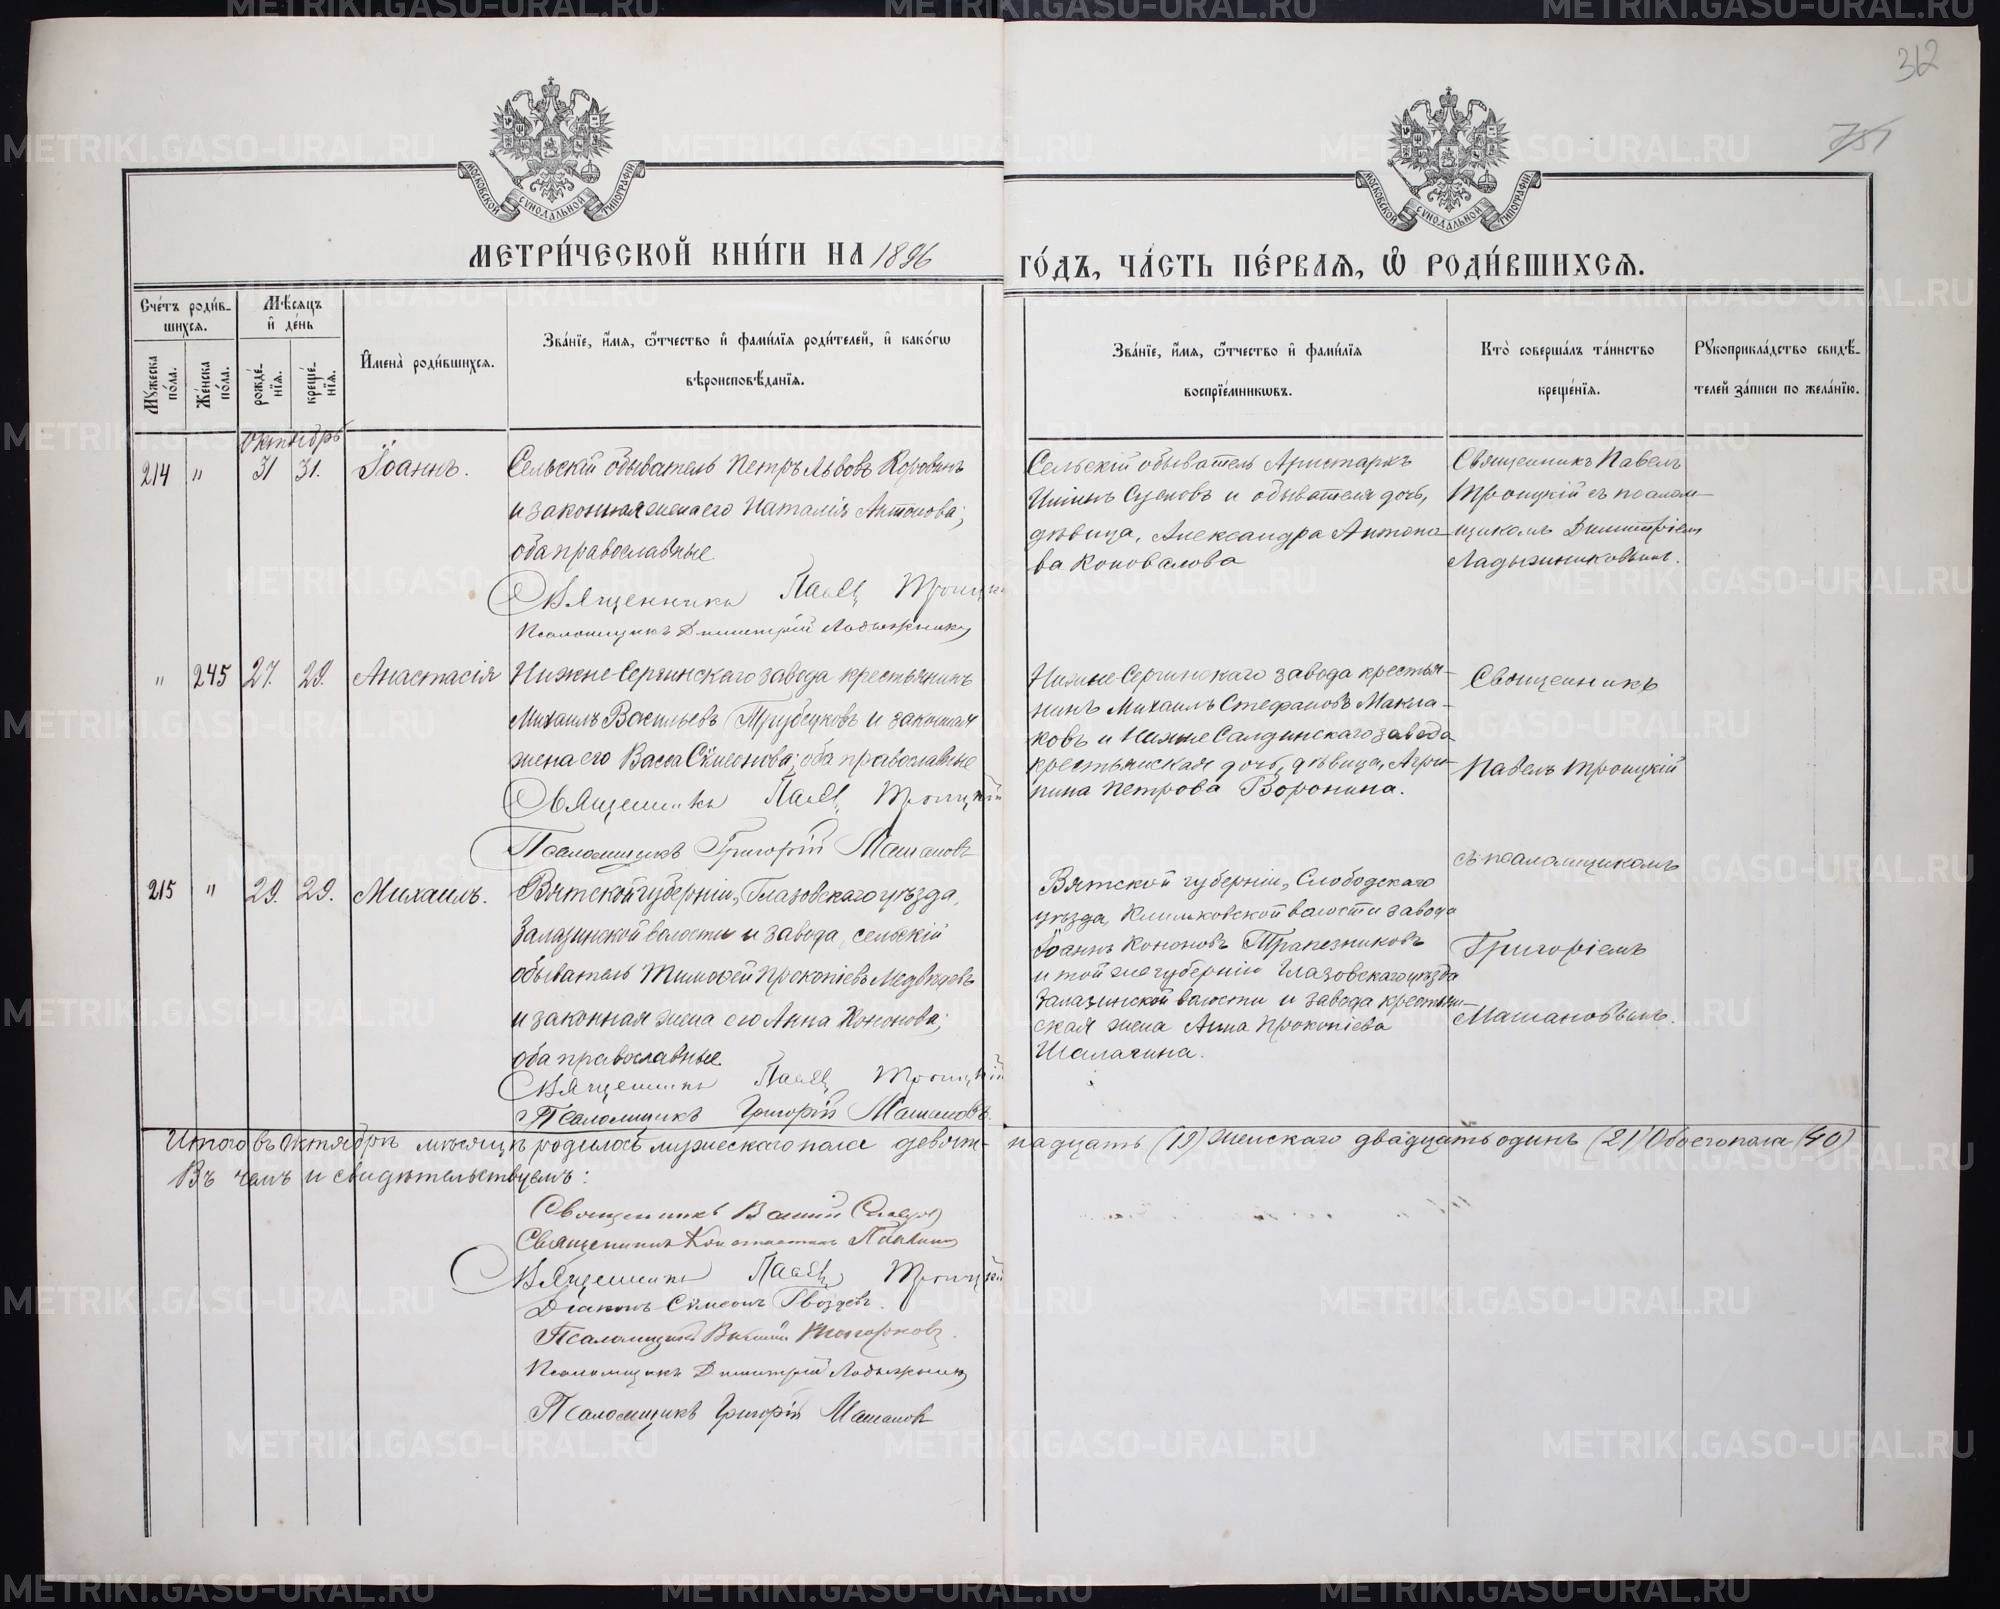 312
751
МОСКОВСКОЙ СУНОДАЛЬНОЙ ТИПОГРАФІИ
МОСКОВСКОЙ СУНОДАЛЬНОЙ ТИПОГРАФІИ
МЕТРИ́ЧЕСКОЙ КНИ́ГИ НА 1896
ГО́ДЪ, ЧА́СТЬ ПЕ́РВАЯ, Ѽ РОДИ́ВШИХСѦ.
Сче́тъ роди́в-
шихсѧ.
Мѣ́сѧцъ
и҆ де́нь
Мꙋ́жеска
по́ла.
Же́нска
по́ла.
рожде́-
нїѧ.
креще́-
нїѧ.
И҆мена̀ роди́вшихсѧ.
Зва́нїе, и҆́мѧ, ѻ҆́тчество и҆ фами́лїѧ роди́телей, и҆ како́гѡ
вѣроисповѣ́данїѧ.
Зва́нїе, и҆́мѧ, ѻ҆́тчество и҆ фами́лїѧ
воспрїе́мникѡвъ.
Кто̀ соверша́лъ та́инство
креще́нїѧ.
Рꙋкоприкла́дство свидѣ́-
телей за́писи по жела́нїю.
Октябрь
214 " 31 31. Іоаннъ.
Сельскій обыватель Петръ Львовъ Коровинъ
и законная жена его Наталія Антонова;
оба православные
Священникъ Павелъ Троицкій
Псаломщикъ Димитрій Ладыжниковъ
Сельскій обыватель Аристархъ
и обывателя дочь,
дѣвица, Александра Антоно-
ва Коновалова
Священникъ Павелъ
Троицкій съ псалом-
щикомъ Димитріем
Ладыжниковымъ.
" 245 27. 29. Анастасія
Нижне-Сергинскаго завода крестьянинъ
Михаилъ Васильевъ Трубецковъ и законная
жена его Васса Симеонова; оба православные
Священникъ Павелъ Троицкій
Псаломщикъ Григорій Машановъ
Нижне Сергинскаго завода крестья-
нинъ Михаилъ Стефановъ Макла-
ковъ и Нижне Салдинскаго завода
крестьянская дочь, дѣвица, Агри-
пина Петрова Воронина.
Священникъ
Павелъ Троицкій
съ псаломщикомъ
Григоріемъ
Машановымъ.
215 " 29. 29. Михаилъ.
Вятской губерніи, Глазовскаго уѣзда,
Залазинской волости и завода, сельскій
обыватель Тимоѳей Прокопіевъ Медвѣдевъ
и законная жена его Анна Кононова;
оба православные
Священникъ Павелъ Троицкій
Псаломщикъ Григорій Машановъ.
Вятской губерніи, Слободскаго
уѣзда, Климковской волости завода
Іоаннъ Кононовъ Трапезниковъ
и той же губерніи Глазовскаго уѣзда
Залазинской волости и завода крестьян-
ская жена Анна Прокопіева
Шалагина.
Итого въ Октябрѣ мѣсяцѣ родилось мужескаго пола девят-
надцать (19) женскаго двадцать одинъ (21) Обоего пола (40)
Въ чемъ и свидѣтельствуемъ:
Священникъ
Священникъ Константинъ
Священникъ Павелъ Троицкій
Діаконъ Симеонъ Гвоздевъ.
Псаломщикъ
Псаломщикъ Димитрій Ладыжниковъ
Псаломщикъ Григорій Машановъ
METRIKI.GASO-URAL.RU